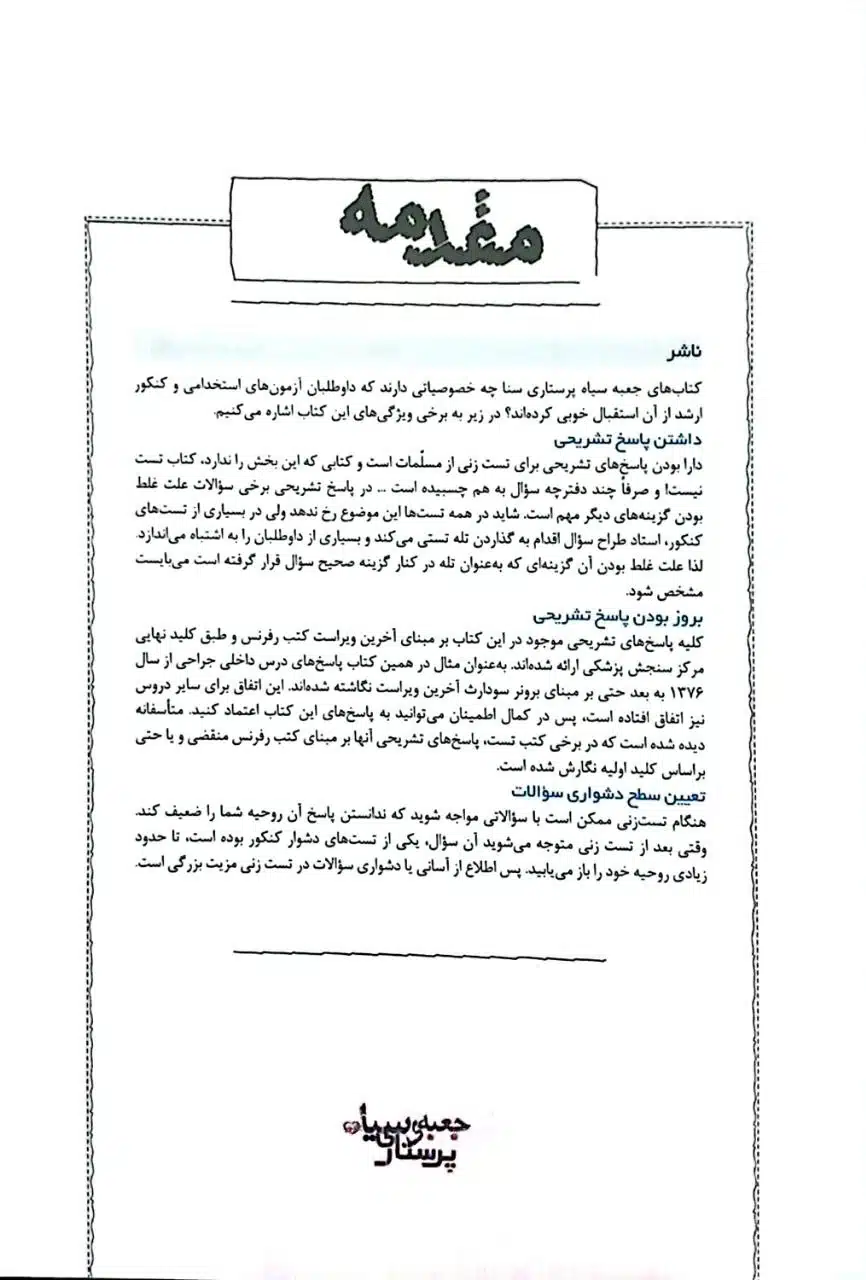 مقدمه
ناشر
کتاب‌های جعبه سیاه پرستاری سنا چه خصوصیاتی دارند که داوطلبان آزمون‌های استخدامی و کنکور
ارشد از آن استقبال خوبی کرده‌اند؟ در زیر به برخی ویژگی‌های این کتاب اشاره می‌کنیم.
داشتن پاسخ تشریحی
دارا بودن پاسخ‌های تشریحی برای تست زنی از مسلّمات است و کتابی که این بخش را ندارد، کتاب تست
نیست! و صرفاً چند دفترچه سؤال به هم چسبیده است ... در پاسخ تشریحی برخی سؤالات علت غلط
بودن گزینه‌های دیگر مهم است. شاید در همه تست‌ها این موضوع رخ ندهد ولی در بسیاری از تست‌های
کنکور، استاد طراح سؤال اقدام به گذاردن تله تستی می‌کند و بسیاری از داوطلبان را به اشتباه می‌اندازد.
لذا علت غلط بودن آن گزینه‌ای که به‌عنوان تله در کنار گزینه صحیح سؤال قرار گرفته است می‌بایست
مشخص شود.
بروز بودن پاسخ تشریحی
کلیه پاسخ‌های تشریحی موجود در این کتاب بر مبنای آخرین ویراست کتب رفرنس و طبق کلید نهایی
مرکز سنجش پزشکی ارائه شده‌اند. به‌عنوان مثال در همین کتاب پاسخ‌های درس داخلی جراحی از سال
۱۳۷۶ به بعد حتی بر مبنای برونر سودارث آخرین ویراست نگاشته شده‌اند. این اتفاق برای سایر دروس
نیز اتفاق افتاده است، پس در کمال اطمینان می‌توانید به پاسخ‌های این کتاب اعتماد کنید. متأسفانه
دیده شده است که در برخی کتب تست، پاسخ‌های تشریحی آنها بر مبنای کتب رفرنس منقضی و یا حتی
براساس کلید اولیه نگارش شده است.
تعیین سطح دشواری سؤالات
هنگام تست‌زنی ممکن است با سؤالاتی مواجه شوید که ندانستن پاسخ آن روحیه شما را ضعیف کند.
وقتی بعد از تست زنی متوجه می‌شوید آن سؤال، یکی از تست‌های دشوار کنکور بوده است، تا حدود
زیادی روحیه خود را باز می‌یابید. پس اطلاع از آسانی یا دشواری سؤالات در تست زنی مزیت بزرگی است.
جعبه‌ی سیاه
پرستاری